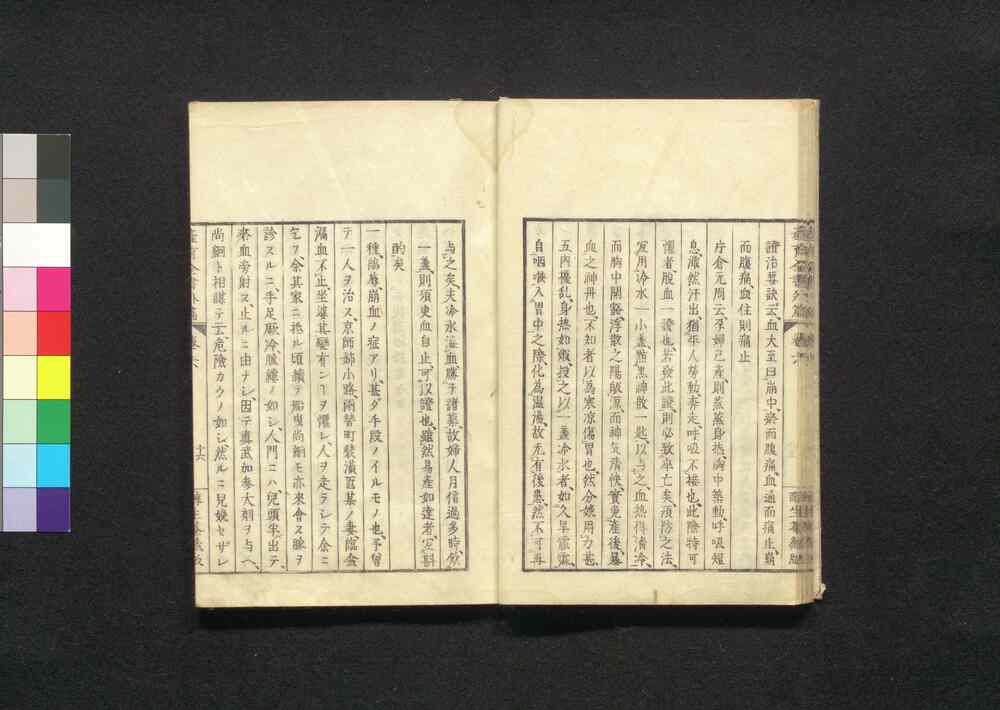 證治要訣云、血大至曰崩中、崩而腹痛、血通而痛止、崩
而腹痛、血住則痛止
片倉元周云、孕婦已產則蒸蒸身熱、胸中築動、呼吸短
息、濈然汗出、猶平人勞動奔走、呼吸不接也、此際特可
懼者、脫血一證也、若發此證、則必致卒亡矣、預防之法、
宜用冷水一小盞、點黑神散一匙、以与之、血熱得清冷、
而胸中開豁、浮散之陽眽凉而神気清快、實免產後暴
血之神丹也、不知者以為寒凉傷胃也、然分娩用力甚、
五內擾乱、身熱如燬、授之以一盞冷水者、如久旱霡霂、
自咽喉入胃中之際、化為温湯、故无有後患、然不可再
与之矣、夫冷水温血牒于諸纂、故婦人月信過多時、飲
一盞則須臾血自止、可以證也、雖然易產如達者、宜斟
酌矣
一種、臨蓐崩血ノ症アリ、甚ダ手段ノイルモノ也、予曾
テ一人ヲ治ス、京師姉小路兩替町裝潢匠某ノ妻、臨盆
漏血不止、坐婆其變有ンコヲ懼レ、人ヲ走ラシテ余ニ
乞フ、余其家ニ抵ル頃、續テ船曳尚絅モ亦來會ス、脉ヲ
診スルニ、手足厥冷、脉縷ノ如シ、人門ニハ兒頭半出テ、
來血旁射ス、止ルニ由ナシ、因テ眞武加參大剤ヲ与ヘ、
尚絅ト相議テ云、危險カクノ如シ、然ルニ兒娩セザレ
卷六
十六